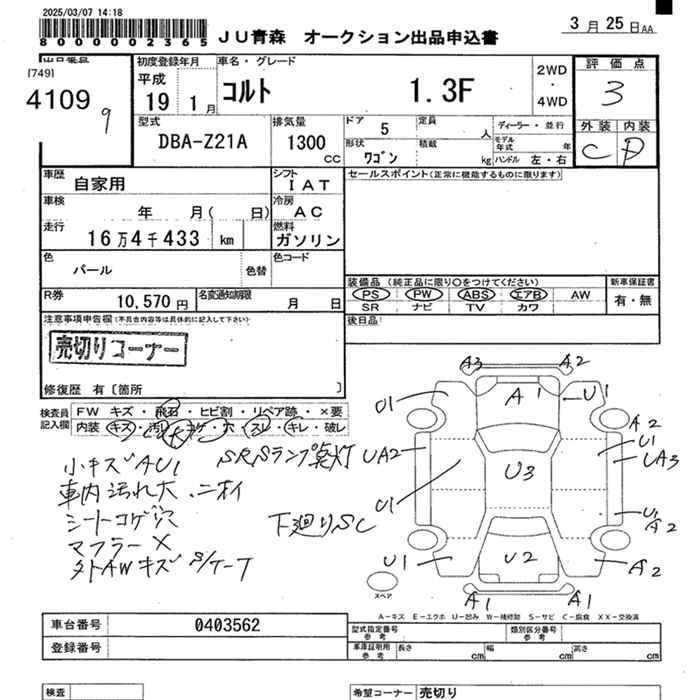 2025/03/07 14:18
8000002365
JU青森 オークション出品申込書
3月25日AA
出品番号
[749]
4109
9
初度登録年月
平成
19 1月
車名・グレード
コルト 1.3F
2WD
・
4WD
評価点
3
型式
DBA-Z21A
排気量
1300
cc
ドア 5
定員 人
ディーラー・並行
モデル年式 年
形状 ワゴン
積載 kg
ハンドル 左・右
外装 内装
C D
車歴 自家用
シフト IAT
セールスポイント(正常に機能するものに限ります)
車検 年 月( 日)
冷房 AC
走行 16万4千433 km
燃料 ガソリン
色 パール
色替
色コード
装備品 (純正品に限り○をつけてください)
PS PW ABS エアB AW
SR ナビ TV カワ
新車保証書
有・無
R券 10,570円
名変通知期限 月 日
後日品
注意事項申告欄(不具合内容等は具体的に記入して下さい)
売切りコーナー
修復歴 有〔箇所 〕
検査員記入欄
FW キズ・飛石・ヒビ割・リペア跡・×要
内装 キズ・汚レ・コゲ・穴・スレ・キレ・破レ
小キズAU1 SRSランプ点灯
車内汚れ大、ニオイ
シートコゲ穴 下廻りSC
マフラーX
外AWキズ S/T-T
A3 A2
U1 A1 U1
A2
UA2 U3 U1
UA3
U1
U1
A2
U1 U2 A2
スペア
A1 A1
A-キズ E-エクボ U-凹み W-補修跡 S-サビ C-腐食 XX-交換済
車台番号 0403562
登録番号
型式指定番号
参考
類別区分番号
参考
車庫証明用
参考
長さ cm
幅 cm
高さ cm
検査
希望コーナー 売切り